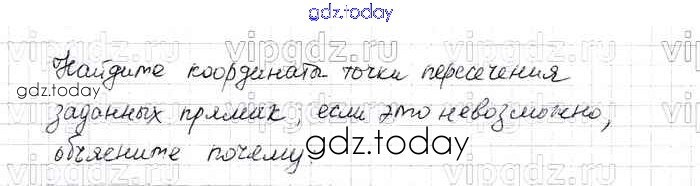 gdz.today
vipgdz.ru vipgdz.ru
Найдите координаты точки пересечения
gdz.today
заданных прямых, если это невозможно,
объясните почему.
gdz.today